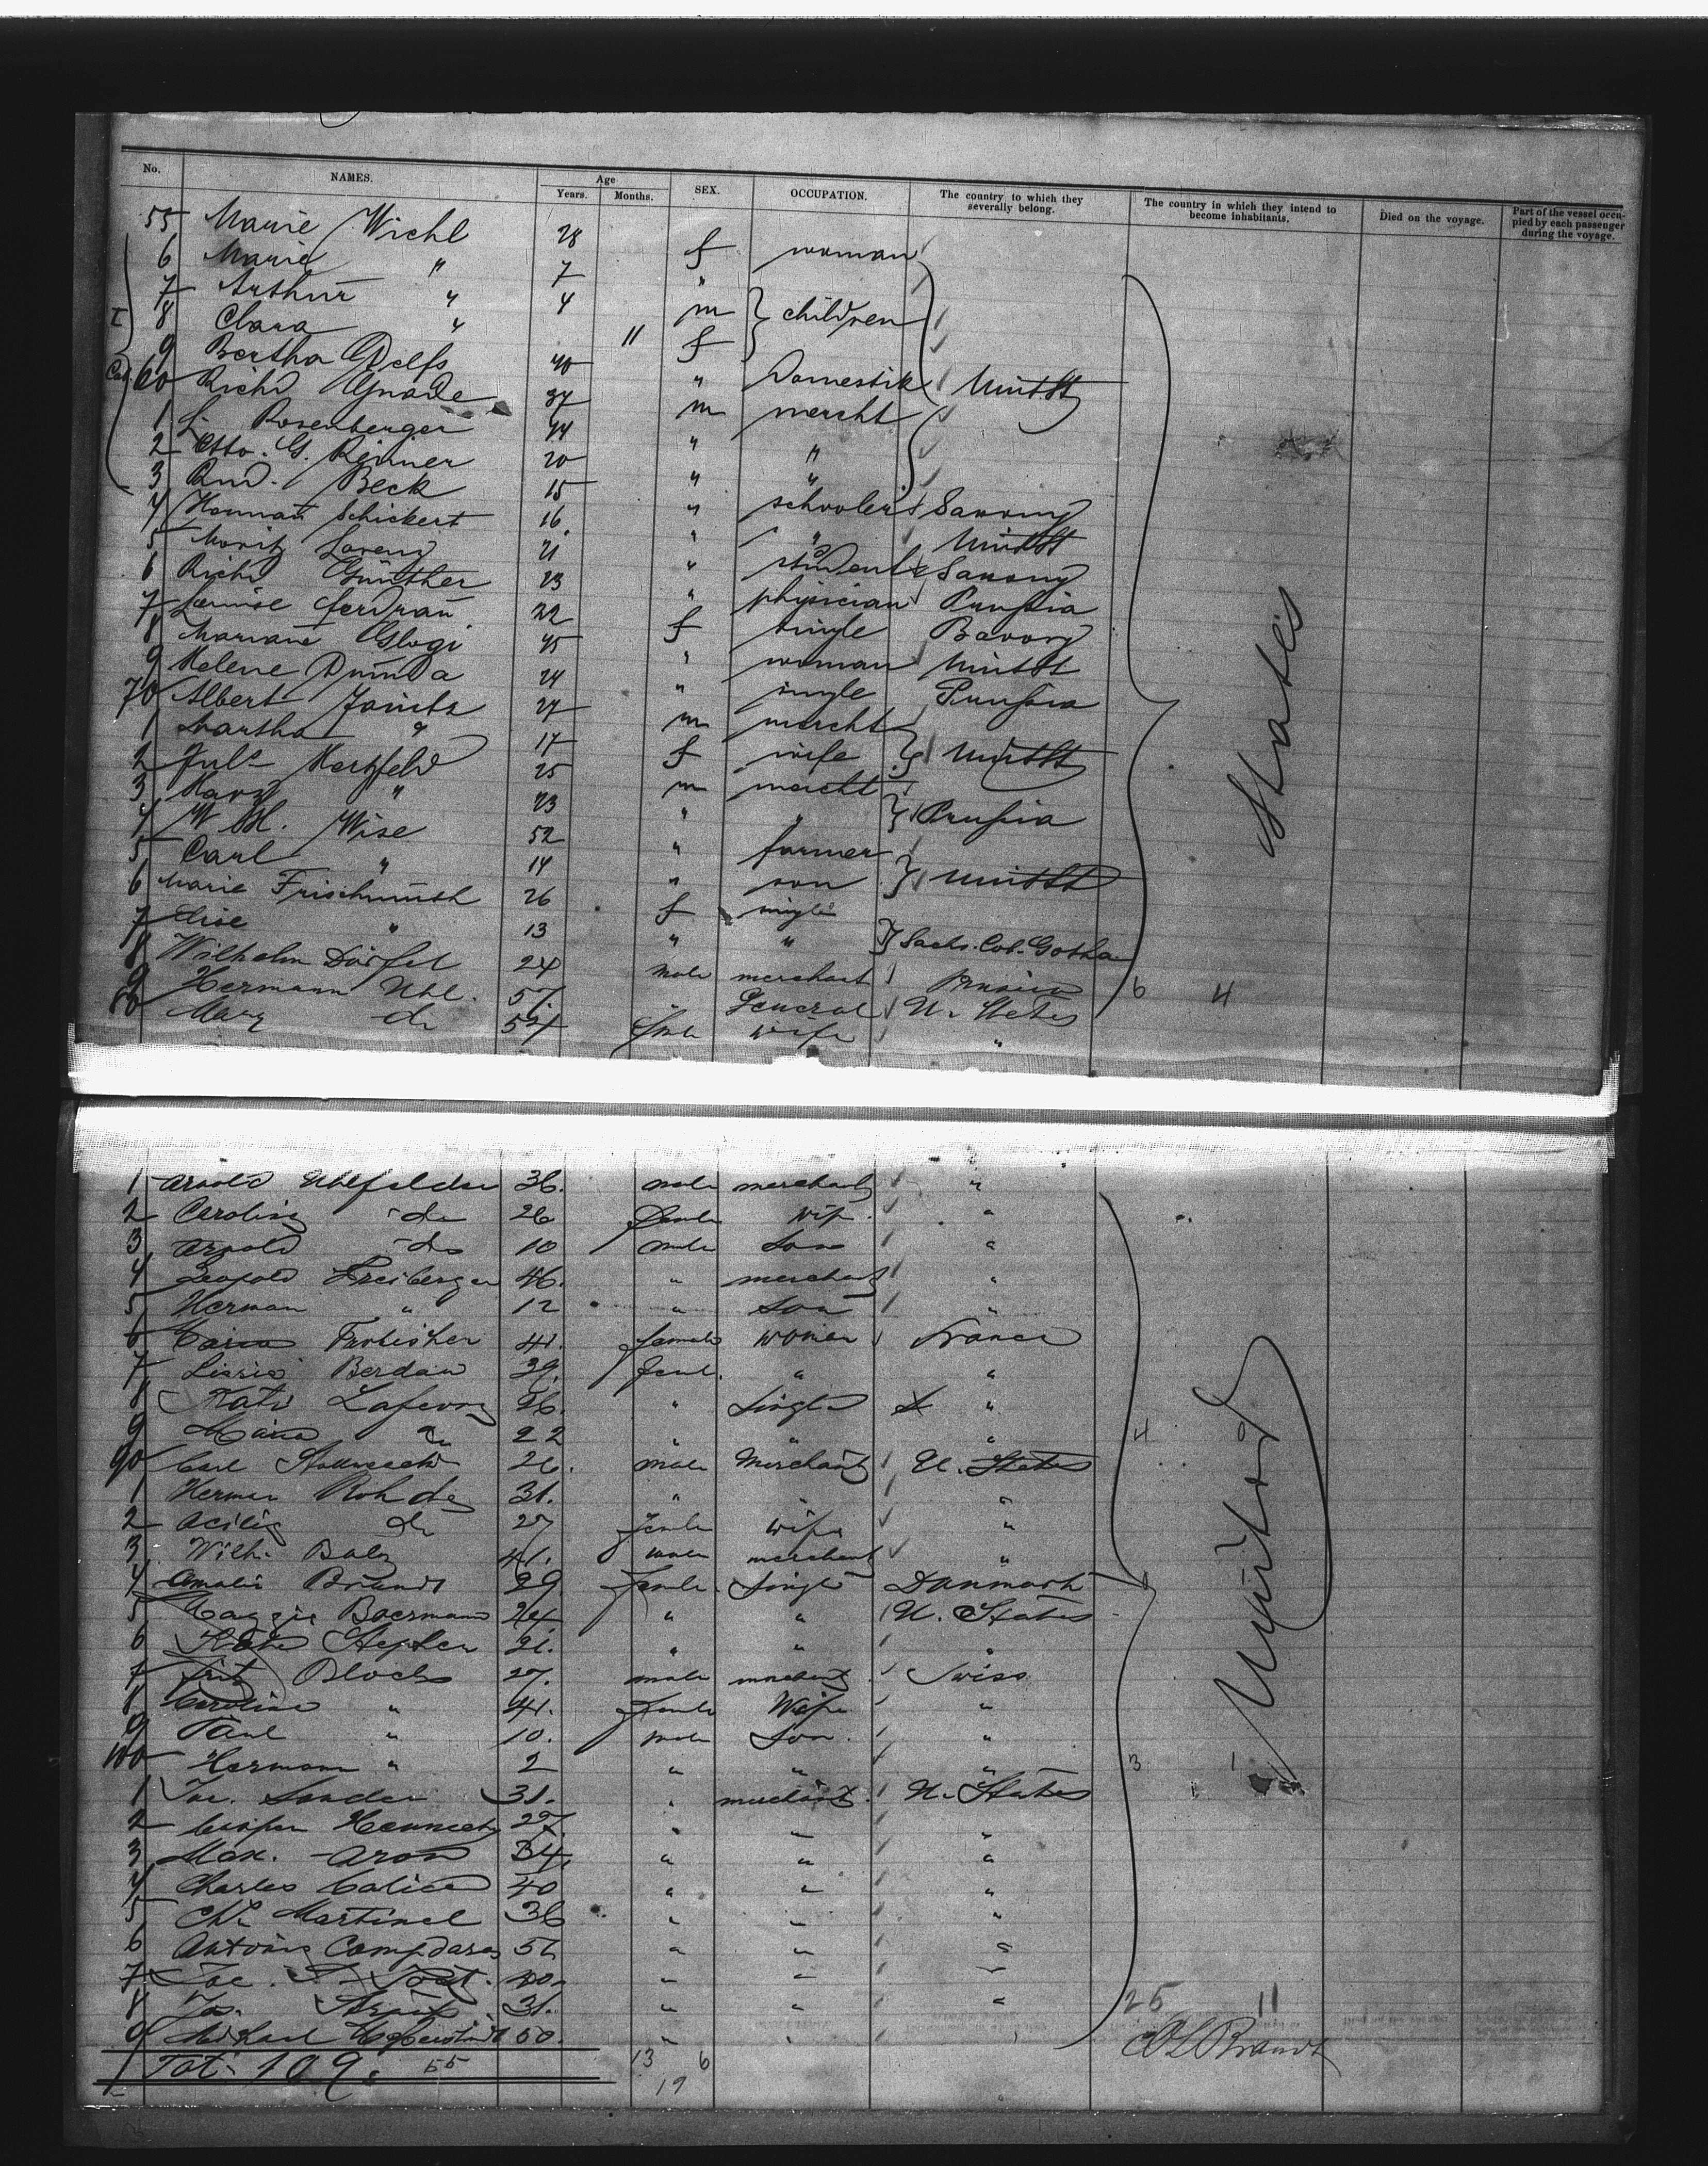 No. NAMES. Age Years. Months. SEX. OCCUPATION. The country to which they severally belong. The country in which they intend to become inhabitants. Died on the voyage. Part of the vessel occupied by each passenger during the voyage.
55 Marie Wiehl 28 f woman
6 Marie " 7 "
7 Arthur " 4 m } children
8 Clara " 11 f
9 Bertha Delfs 40 " Domestik Unit St
60 Richd Gnade 37 m mercht
1 L. Rosenberger 44 " "
2 Otto. G. Renner 20 " "
3 Rud. Beck 15 " schooler Saxony
4 Hannah Schickert 16 " " Unit St
5 Moritz Lorenz 21 " student Saxony
6 Richd Günther 23 " physician Prussia
7 Louise 22 f single
8 Mariane Glogi 45 " woman Unit St
9 Helene 24 " single Prussia
70 Albert Janitz 27 m mercht
1 Martha " 17 f wife } Unit St
2 Juls Hertzfeld 25 m mercht
3 Harry " 23 " " } Prussia
4 W. H. Wise 52 " farmer
5 Carl " 14 " son } Unit St
6 Marie Frischmuth 26 f single
7 Elise " 13 " " } Sachs. Cob. Gotha
8 Wilhelm Dörfel 24 male merchant Prussia 6 4
9 Hermann Uhl. 57. " General U. States
80 Mary do 54 female wife "
States
1 Arnold Uhlfelder 36. male merchant "
2 Caroline do 26 female wife "
3 Arnold do 10 male Son "
4 Leopold Freiberger 46. " merchant "
5 Herman " 12 " Son "
6 Maria Frobisher 41. female woman France
7 Lizzie Berdan 39. female " "
8 Kate Lafevre 26. " Single X "
9 Maria do 22 " " " 4
90 Carl 26. male Merchant U. States
1 Herman Rohde 31. " " "
2 do 27 female wife "
3 Wilh. Balz 41. male merchant "
4 Amalie Brandt 29 female Single Danmark
5 Maggie Boermann 24 " " U. States
6 Kate Stephen 21. " " "
7 Fritz Blochs 27. male merchant Swiss
8 Caroline " 41. female Wife "
9 Paul " 10. male Son. "
100 Hermann " 2 " " " 3 1
United
1 Joe. Sander 31. " merchant. U. States
2 Hennecky 27. " " "
3 Max. Aron 34. " " "
4 Charles Calice 40 " " "
5 Ch. Martinel 36 " " "
6 Antonio 56 " " "
7 Joe. 40. " " "
8 Jos. 31. " " " 25 11
9 Michael 50. " "
Tot. 109. 55 13 6
19